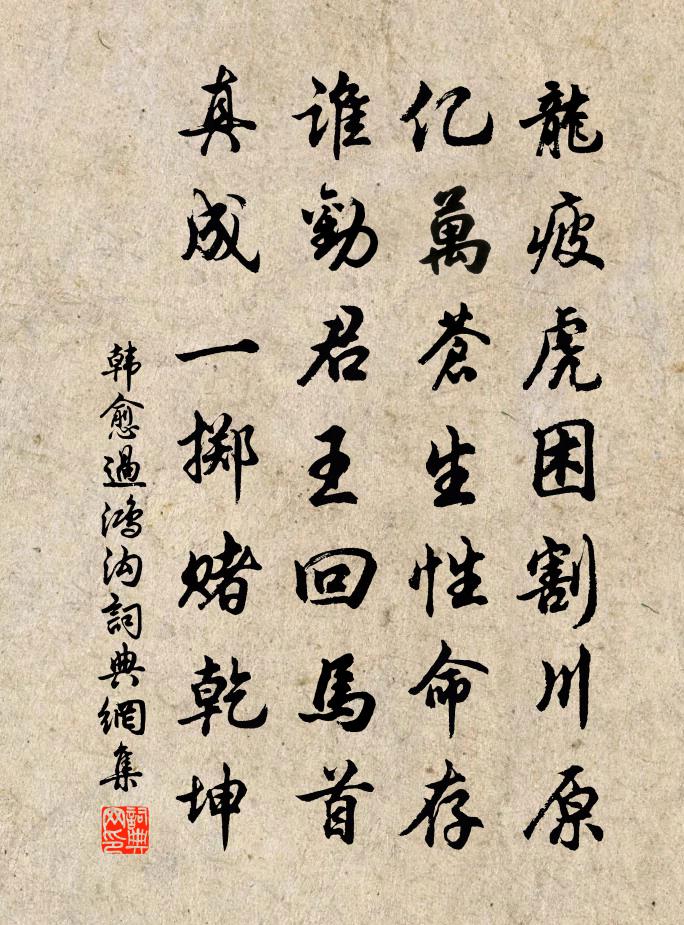 龍疲虎困割川原
亿萬蒼生性命存
誰勸君王回馬首
真成一擲赌乾坤
韩愈過鴻沟詞典網集
詞典網印